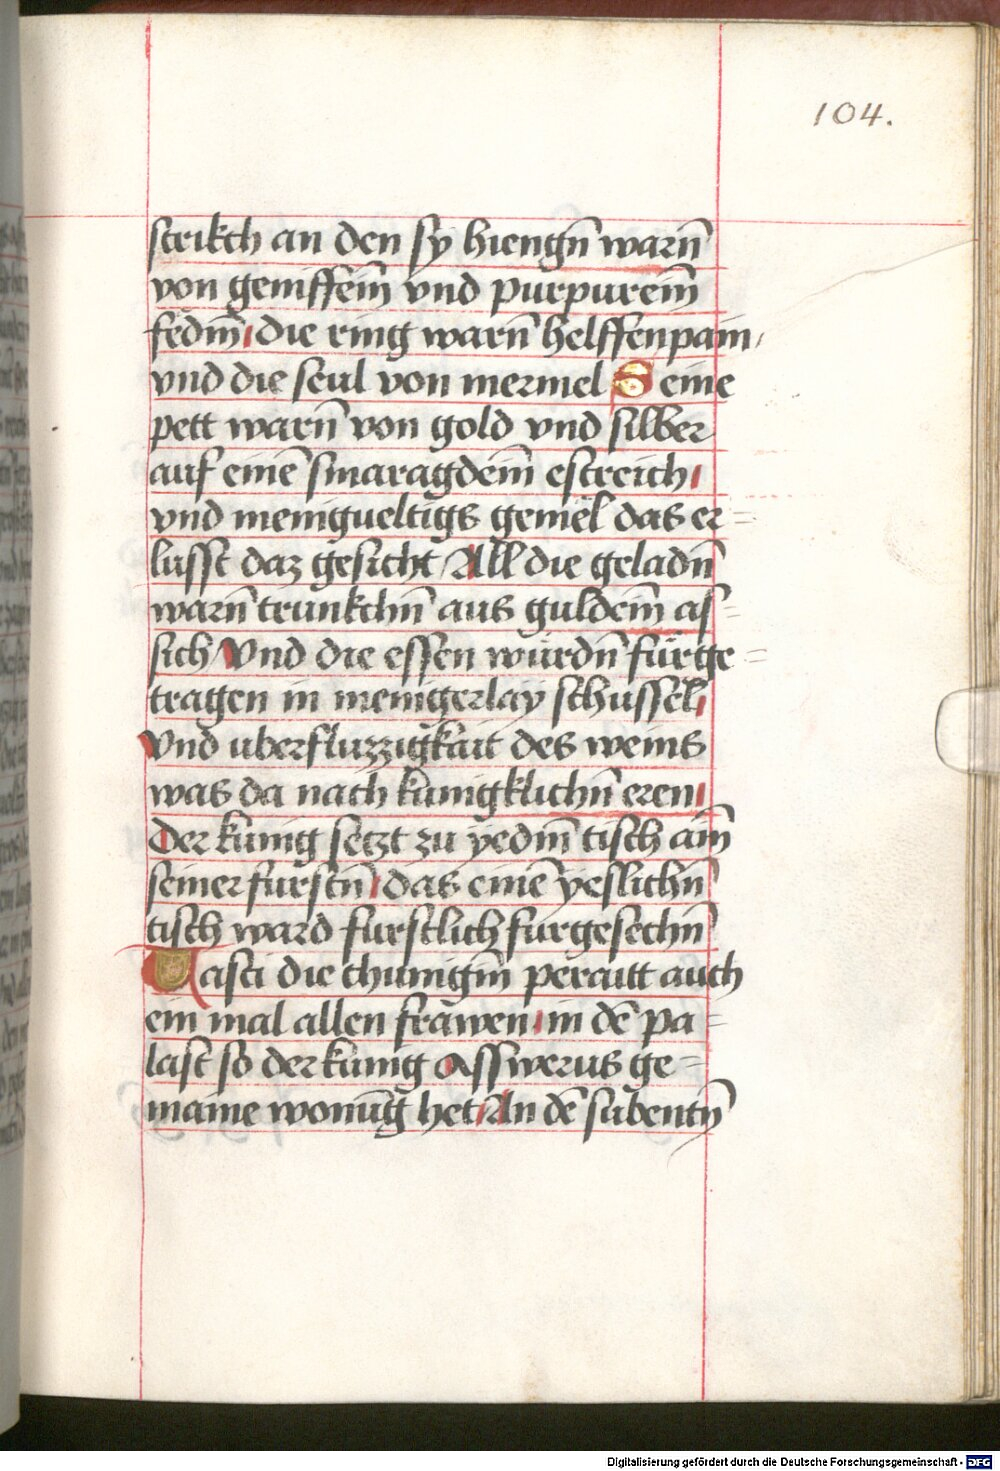 104.
strikch an den sy hiengn̄ warn̄
von genisseim̄ vnd purpureim̄
fedm̄ die ring warn̄ helffenpain
vnd die seul von mermel Seine
pett warn̄ von gold vnd silber
auf einē smaragdeim̄ estreich
vnd menigueltigs gemël das er=
lusst daz gesicht All die geladn̄
warn̄ trunkchn̄ aus guldeim̄ as=
sich Vnd die essen wurdn̄ fürge=
tragen in menigerlay schussel
Vnd uberfluzzigkait des weins
was da nach kunigklichn̄ eren
Der kunig setzt zu yedm̄ tisch aim̄
seiner furstn̄ das einē yeslichn̄
tisch ward furstlich furgesechn̄
Vasti die chunigin̄ peraitt auch
ein mal allen frawen in dē pa=
last so der kunig Asswerus ge=
maine wonūg het An dē subentn̄
Digitalisierung gefördert durch die Deutsche Forschungsgemeinschaft - DFG